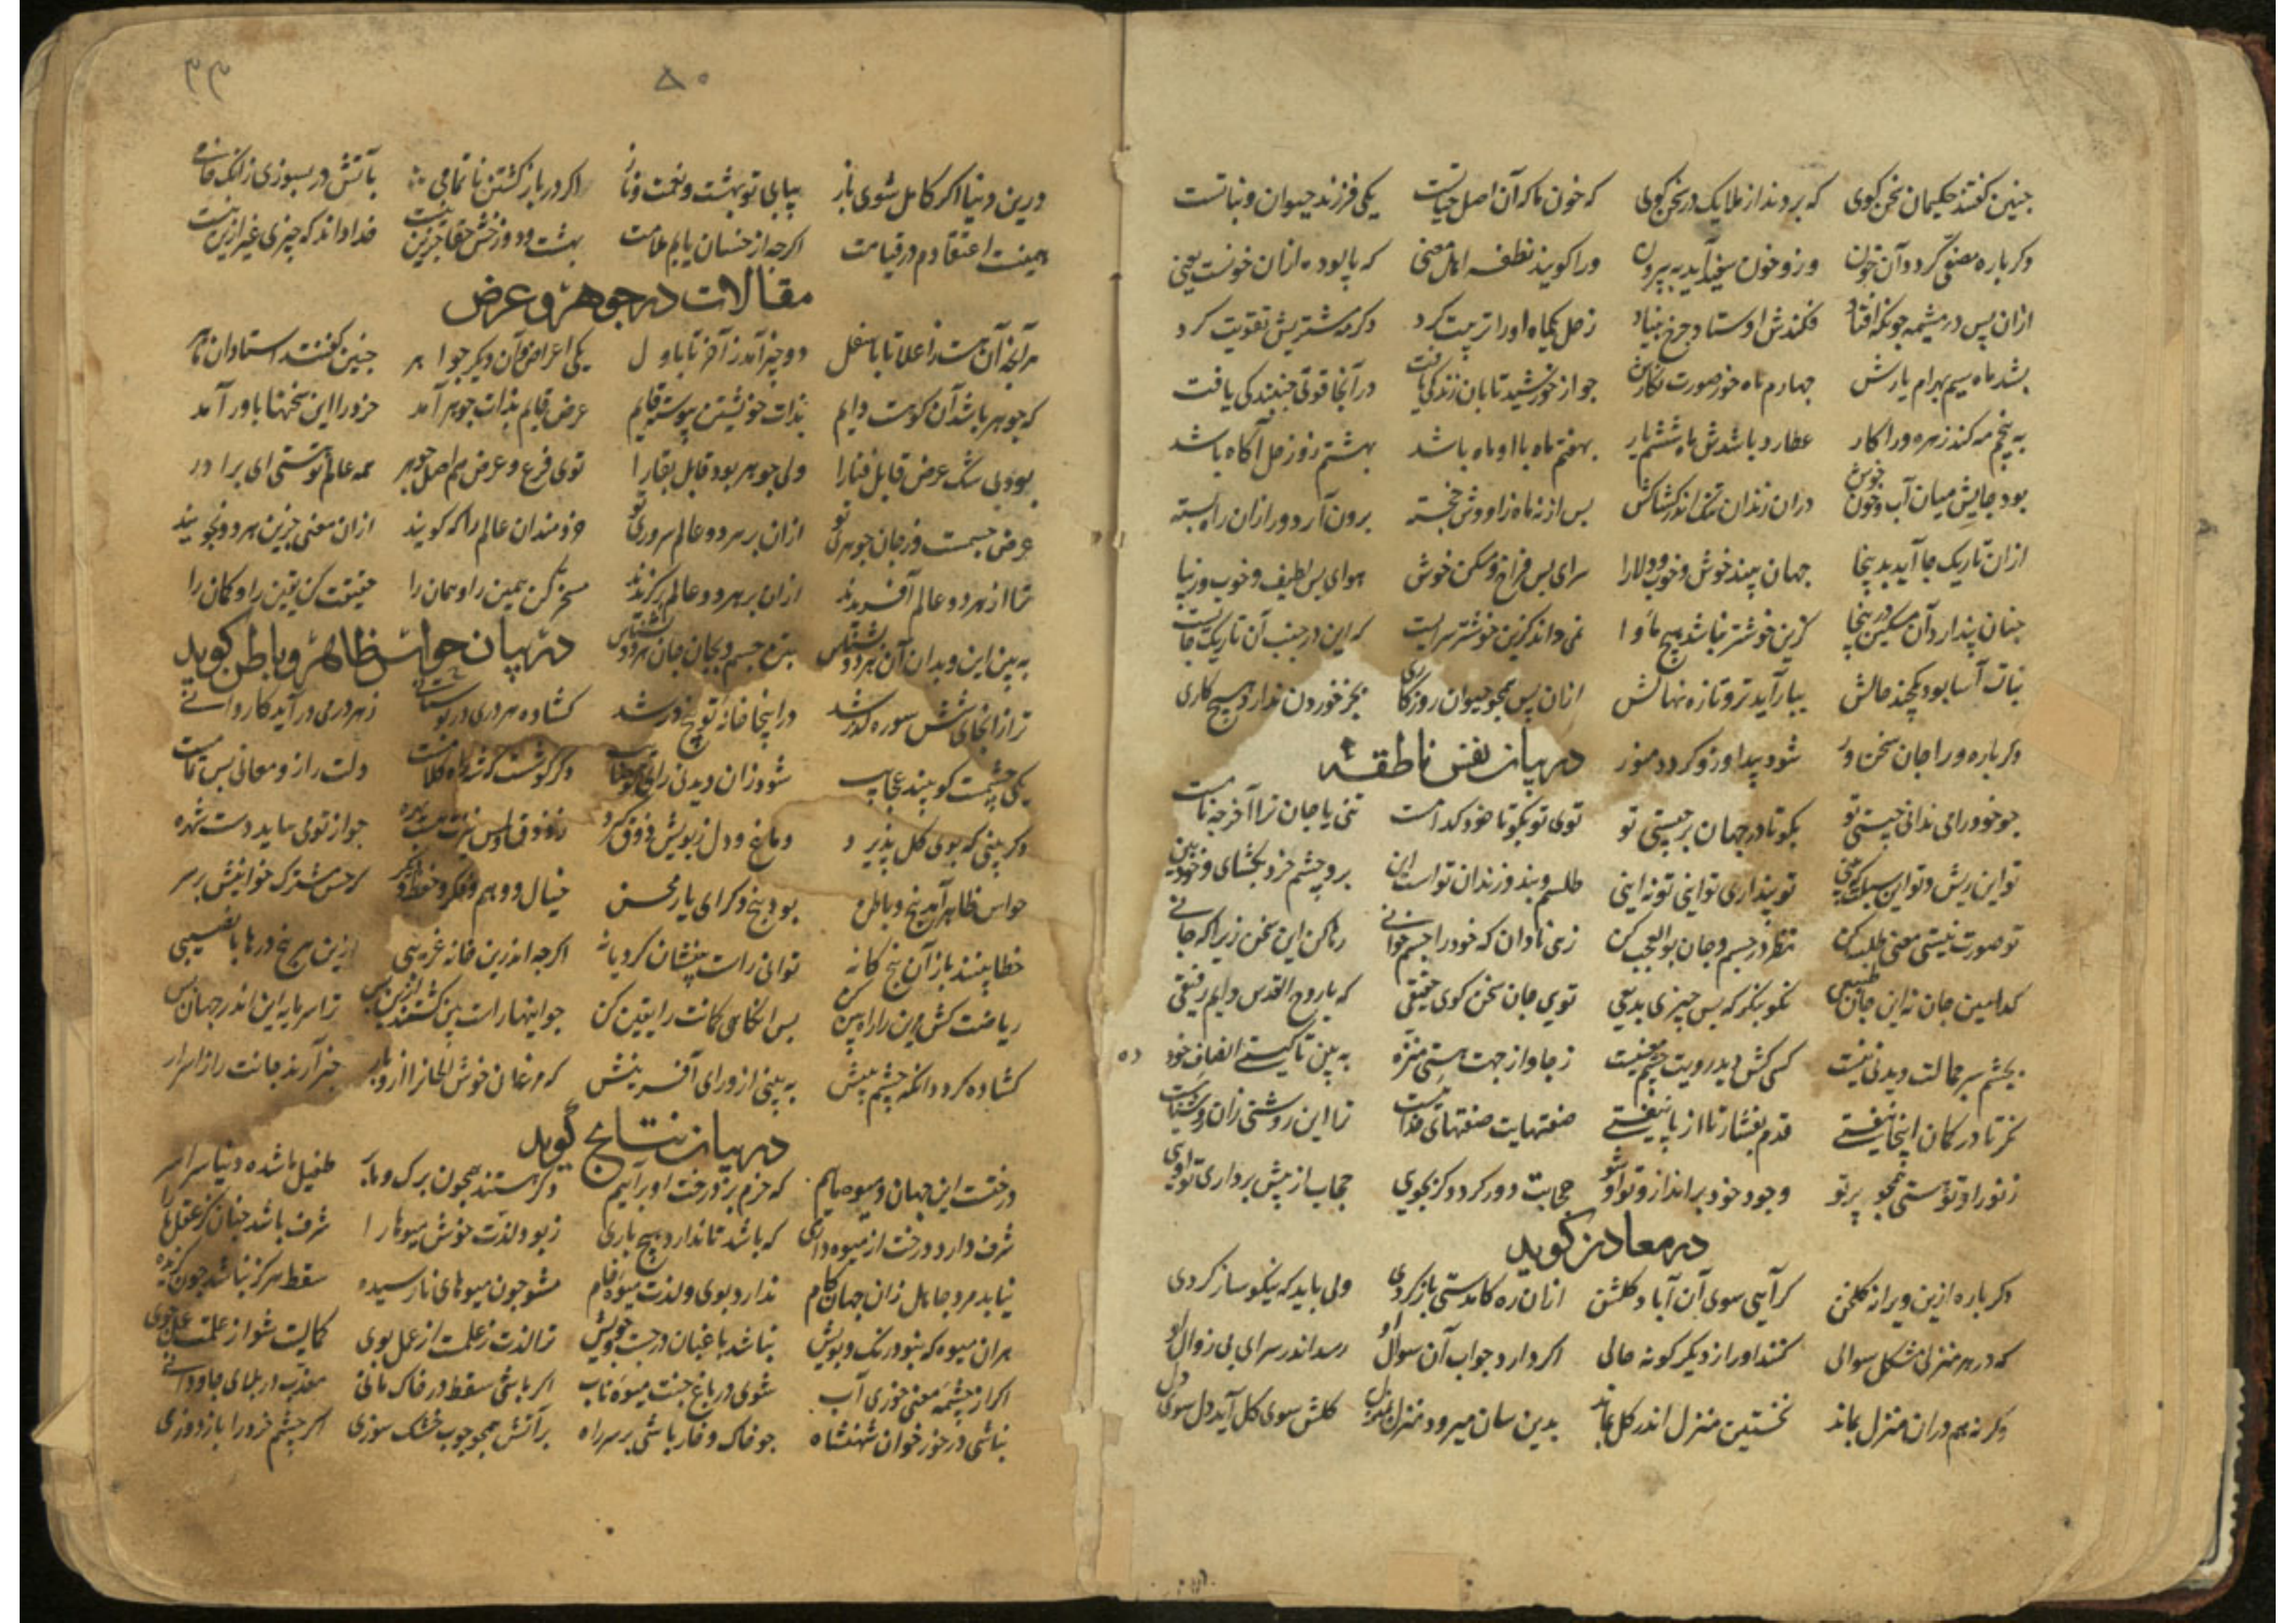 چنین گفتند حکیمان سخن گوی که بردند از ملایک در سخن گوی که خون ما که آن اصل حیاتست یکی فرزند حیوان و نباتست
دگرباره مصفی گردد آن خون وزو خون سفید آید به بیرون ورا گویند نطفه اهل معنی که پالوده ازان خونست یعنی
ازان پس در مشیمه چونکه افتاد فکندش اوستاد چرخ بنیاد زحل یکماه او را تربیت کرد دگر مه مشتریش تقویت کرد
بشد ماه سیم بهرام یارش چهارم ماه خور صورت نگارش چو از خورشید تابان زندگی یافت در آنجا قوتی جنبندگی یافت
به پنجم مه کند زهره ورا کار عطارد باشدش ماه ششم یار بهفتم ماه با او ماه باشد بهشتم روز زحل آگاه باشد
بود جایش میان آب و خون خوش دران زندان تنک اندر کشاکش پس از نه ماه زاووش خجسته برون آرد ورا زان راه بسته
ازان تاریک جا آید بدینجا جهان بیند خوش و خوب و دلارا سرای بس فراخ و مسکن خوش هوای بس لطیف و خوب و زیبا
چنان پندارد آن مسکین در پنجا کزین خوشتر نباشد هیچ ماوا نمی داند کزین خوشتر سرایست که این در جنب آن تاریک جایست
نبات آسا بود یکچند حالش ببار آید تر و تازه نهالش ازان پس همچو حیوان روزگاری بجز خوردن ندارد هیچ کاری
دگرباره ورا جان سخن ور شود پیدا وزو گردد منور
در بیان نفس ناطقه
چو خود را می ندانی چیستی تو بگو تا در جهان بر چیستی تو توی تو بگو تا خود کدامست تنی یا جان ترا آخر چه نامست
تو این ریش و تو این سبلت که بینی تو پنداری تو اینی تو نه اینی طلسم و بند و زندان تو است این برو چشم خرد بگشای و خود بین
تو صورت نیستی معنی طلب کن نظر در جسم و جان بوالعجب کن زهی نادان که خود را جسم خوانی رها کن این سخن زیرا که جانی
کدامین جان نه این جان طبیعی نکو بنگر که بس چیزی بدیعی توی جان سخن گوی حقیقی که با روح القدس دایم رفیقی
بچشم سر جمالت دیدنی نیست کسی کش دید رویت چشم معنیست ز جا و از جهت هستی منزه به بین تا کیستی انصاف خود ده
نگر تا در گمان اینجا نیفتی قدم بفشار تا از پا نیفتی صفتهایت صفتهای خداست ترا این روشنی زان روشناست
ز نور او تو هستی همچو پرتو وجود خود برانداز و تو او شو حجابت دور گردد گر بجویی حجاب از پیش برداری تو اویی
در معاد نز گوید
دگرباره ازین ویرانه گلخن گر آیی سوی آن آباد گلشن ازان ره کامدستی باز گردی ولی باید که نیکو ساز کردی
که در هر منزلی مشکل سوالی کنند او را ز دیگر گونه حالی اگر دارد جواب آن سوال او رسد اندر سرای بی زوال او
وگر نه هم دران منزل بماند نخستین منزل اندر گل بماند بدین سان میرود منزل بمنزل گلش سوی گل آید دل سوی دل
۸۰
درین دنیا اگر کامل شوی باز بیابی تو بهشت و نعمت و ناز اگر در بازگشتن ناتمامی بآتش در بسوزی زانک خامی
همینست اعتقادم در قیامت اگرچه از خسان یابم ملامت بهشت و دوزخش حقا جزین نیست خدا داند که چیزی غیر ازین نیست
مقالات در جوهر و عرض
هرآنچه آن هست از اعلا تا باسفل دو چیز آمد ز آخر تا باول یکی اعراض و آن دیگر جواهر چنین گفتند استادان ماهر
که جوهر باشد آن کوهست دایم بذات خویشتن پیوسته قایم عرض قایم بذات جوهر آمد خرد را این سخنها باور آمد
بود بی شک عرض قابل فنا را ولی جوهر بود قابل بقا را توی فرع و عرض هم اصل جوهر همه عالم تو هستی ای برادر
عرض جسمت وز جان جوهری تو ازان بر هر دو عالم سروری تو خردمندان عالم را که گویند ازان معنی جزین هر دو نجویند
ترا از هر دو عالم آفریدند ازان بر هر دو عالم برگزیدند مسخر کن همین را و همان را حقیقت کن یقین را و گمان را
به بین این و بدان آن هر دو بشناس بتن جسم و بجان جان هر دو بشناس
در بیان حواس ظاهر و باطن گوید
ترا ز انجای شش سوره گذر شد در اینجا خانه تو پنج در شد گشاده هر دری در بوستانی ز هر در می درآید کاروانی
یکی چشمت کو بیند عجایب شود زان دیدنی رای تو صایب دگر گوشت کزو راه کلامست دلت راز و معانی بس تمامست
دگر بینی که بوی گل پذیرد دماغ و دل ز بویش ذوق گیرد چو از تو می بیابد دست بهره
حواس ظاهر آمد پنج و باطن بود پنج دگر ای یار محسن خیال و وهم و فکر و حفظ دیگر که حس مشترک خوانیش بر سر
خطا بینند باز آن پنج گانه توانی راست بینشان کرد یا نه اگرچه اندرین خانه غریبی ازین هر پنج درها با نصیبی
ریاضت کش و این را راه بین کن پس انگاهی گمانت را یقین کن ترا سرمایه این اندر جهان بس
گشاده گردد انگه چشم بینش به بینی از ورای آفرینش که مرغان خوش الحان را از آن بار خبر آرند جانت را ز اسرار
در بیان نتایج گوید
درختست این جهان و میوه ماییم که خرم بر درخت او برآییم دگر هستند همچون برگ و مایه طفیل ما شده دنیا سراسر
شرف دارد درخت از میوه داری که باشد تا ندارد هیچ باری ز بو و لذت خوش میوها را شرف باشد چنان کز عقل ما را
نیابد مرد جاهل زان جهان کام ندارد بوی و لذت میوه خام مشو چون میوهای نارسیده سقط هرگز نباشد چون گزیده
هران میوه که نبود رنگ و بویش نباشد باغبان در جست و جویش ترا لذت ز علمست از عمل بوی کمالیت شو از علمت عمل جوی
اگر از چشمه معنی خوری آب شوی در باغ جنت میوه ناب اگر باشی سقط در خاک مانی معذب در بلای جاودانی
نباشی در خور خوان شهنشاه چو خاک و خار باشی بر سر راه بر آتش همچو چوب خشک سوزی اگر چشم خرد را باز دوزی